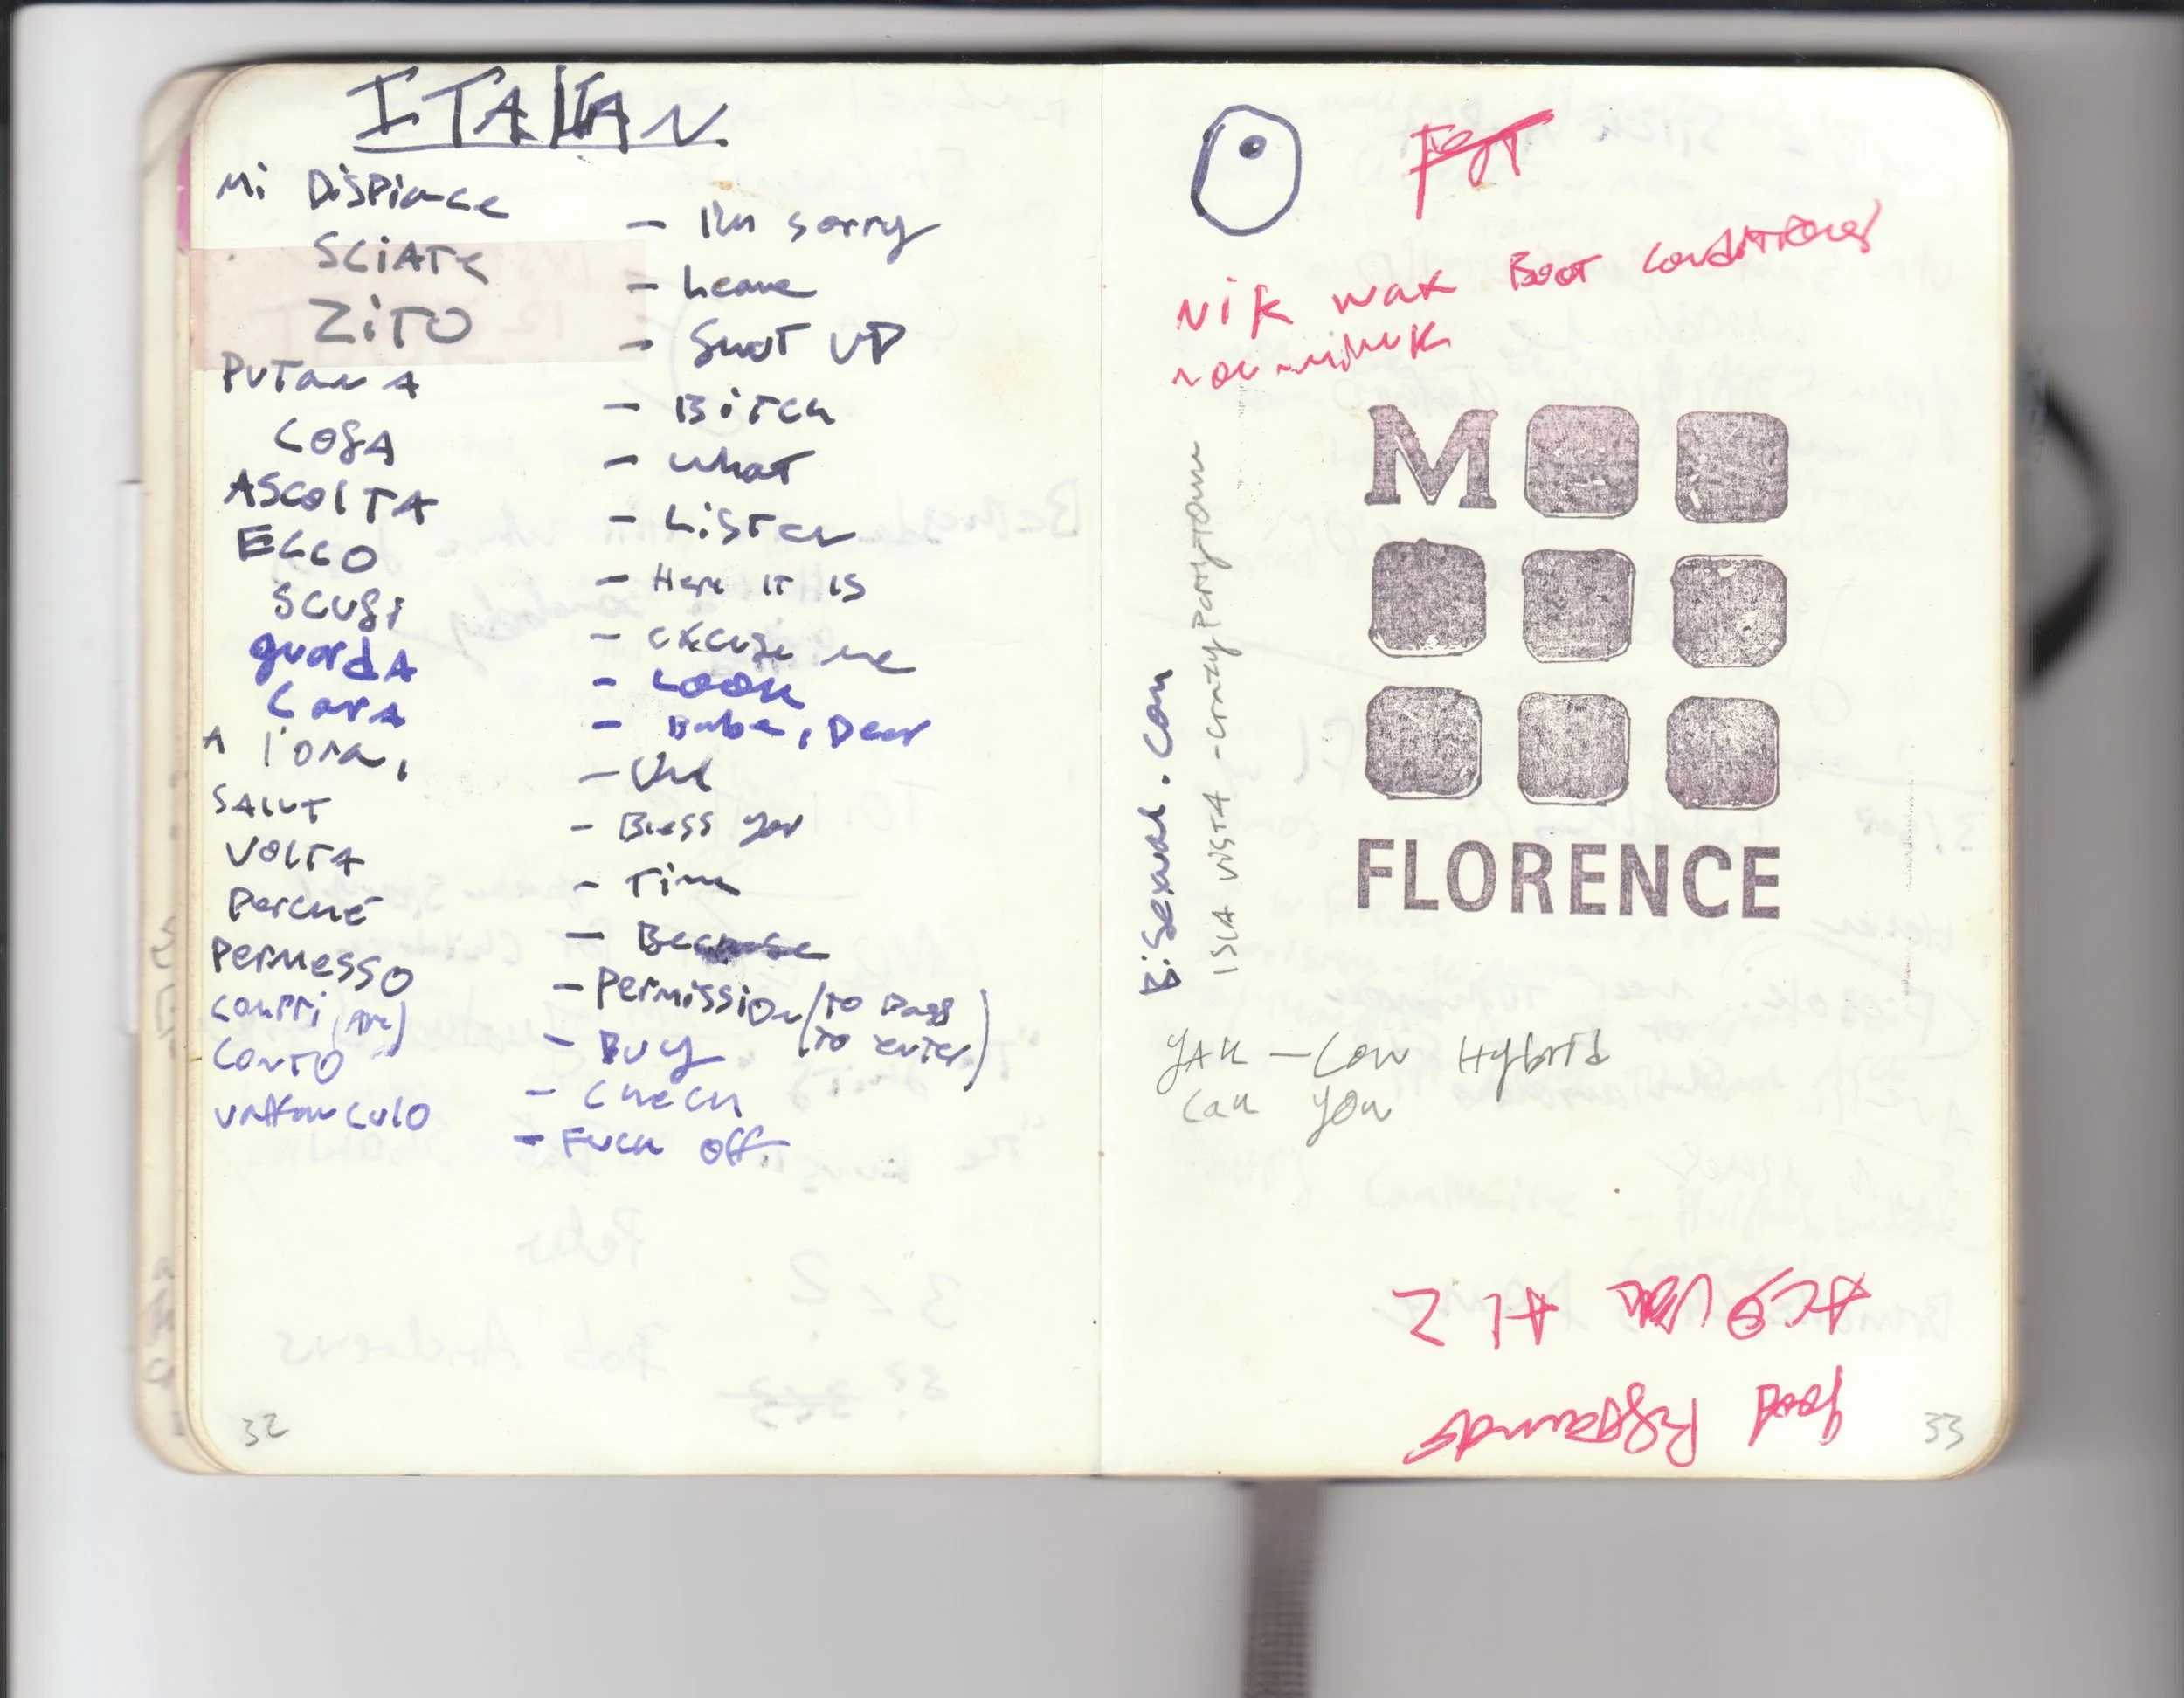 ITALIAN
Mi Dispiace - I'm sorry
SCiATE - Leave
ZiTO - Shut UP
PUTanA - Bitch
COSA - what
ASCOLTA - Listen
ECCO - Here it is
SCUSi - excuse me
guardA - Look
CarA - Babe, Dear
A l'ora,
SALUT - Bless you
VOLTA - Time
Perché - Because
Permesso - Permission (to Pass
(to enter)
Compri (are) - Buy
Conto - Check
vaffanculo - Fuck off.
32
Nik wax Boot Conditioner
Bisexual.com
ISLA VISTA - Crazy Party Town
M
FLORENCE
YAK - Cow Hybrid
Can you
good
33